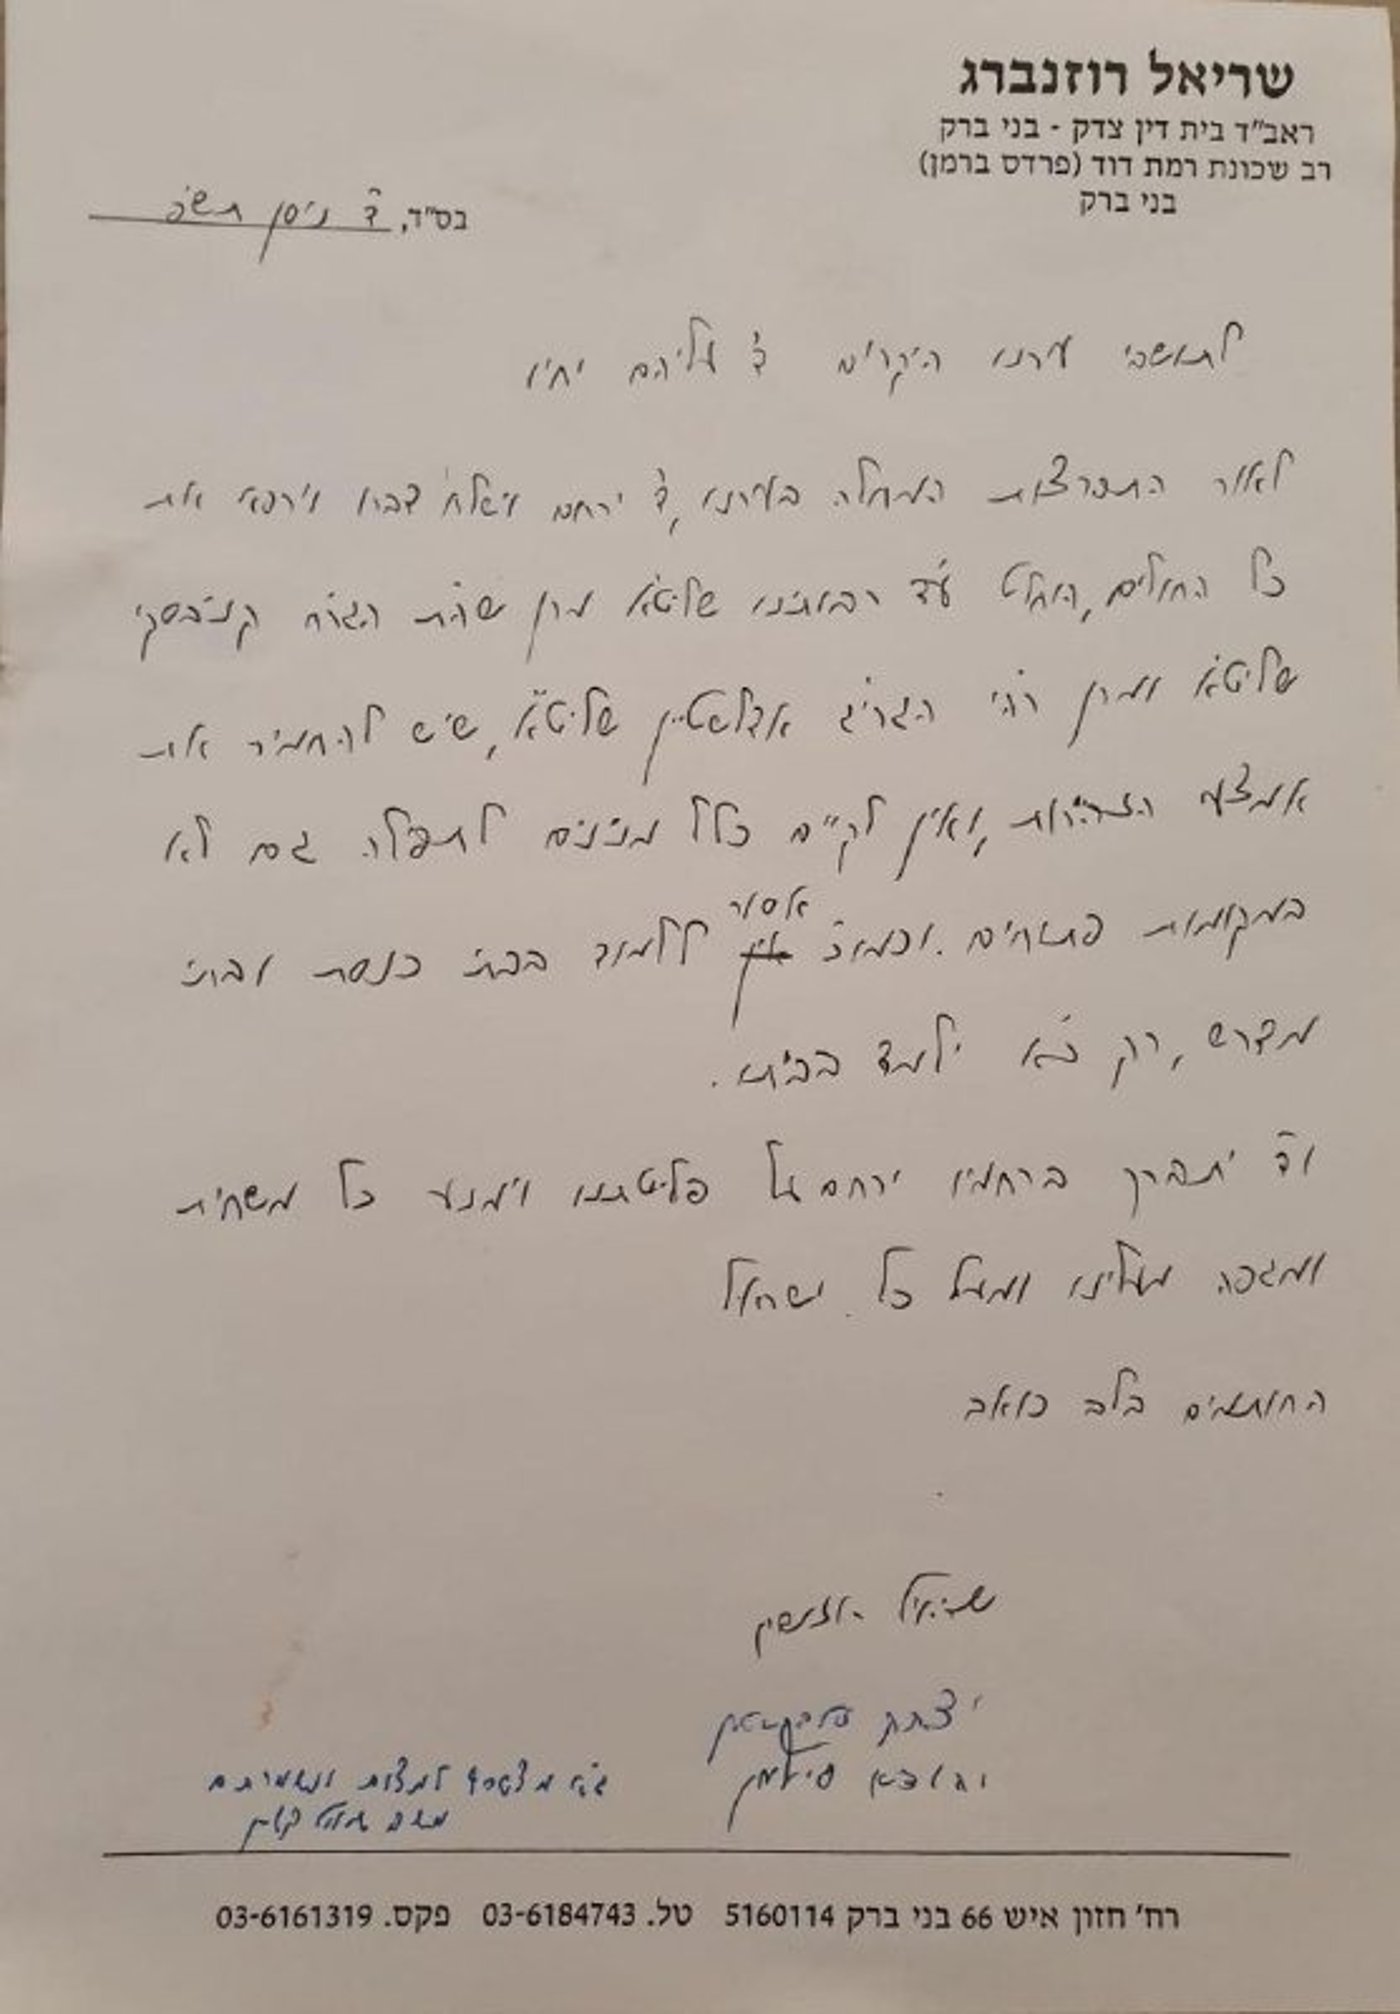 שריאל רוזנברג
ראב"ד בית דין צדק - בני ברק
רב שכונת רמת דוד (פרדס ברמן)
בני ברק
בס"ד, ד' ניסן תש"פ
לתושבי עירנו היקרים ד' עליהם יחיו
לאור התפרצות המחלה בעירנו, ד' ירחם וישלח דברו וירפא את
כל החולים, הוחלט ע"ד רבותינו שליט"א מרן שה"ת הגר"ח קנייבסקי
שליט"א ומרן רה"י הגרי"ג אדלשטיין שליט"א, שיש להחמיר את
אמצעי הזהירות, ואין לקיים כלל מנינים לתפילה גם לא
במקומות פתוחים. וכמו"כ אסור ללמוד בבתי כנסת ובתי
מדרש, רק כ"א ילמד בביתו.
וד' יתברך ברחמיו ירחם על פליטתנו וימנע כל משחית
ומגפה מעלינו ומעל כל ישראל
החותמים בלב כואב
שריאל רוזנברג
יצחק
יהודא סילמן
גי"א מצטרף למצות ונשמרתם
רח' חזון איש 66 בני ברק 5160114 טל. 03-6184743 פקס. 03-6161319